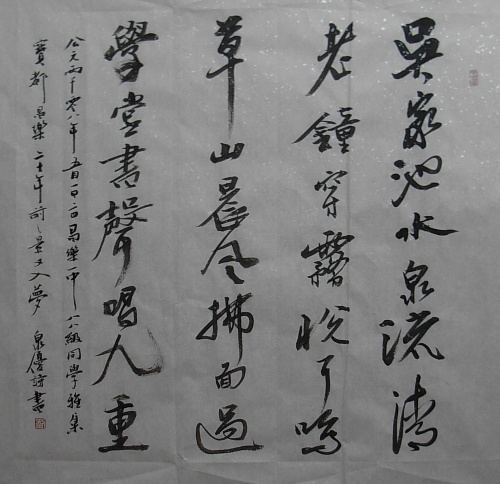 吴家池水泉流清
老鐘穿霧悦耳鳴
草山晨風拂面過
學堂書聲唱九重
公元兩千零八年五月一日昌樂一中八八級同學雅集
寶都昌樂二十年前之景又入夢 泉優詩書